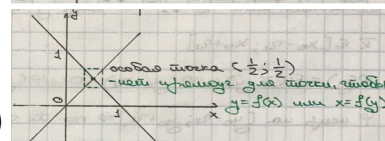 y
1
особая точка (1/2; 1/2)
- нет прямоуг. для точки, чтобы
y=f(x) или x=f(y)
0
1
x